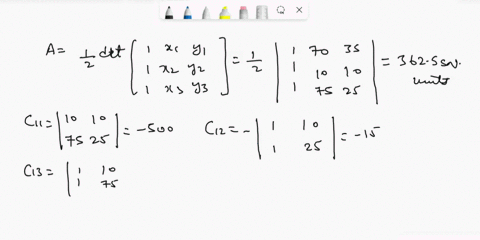 A = 1/2 det [1 x1 y1; 1 x2 y2; 1 x3 y3] = 1/2 |1 70 35; 1 10 10; 1 75 25| = 362.5 sqv. units
C11 = |10 10; 75 25| = -500 C12 = - |1 10; 1 25| = -15
C13 = |1 10; 1 75|